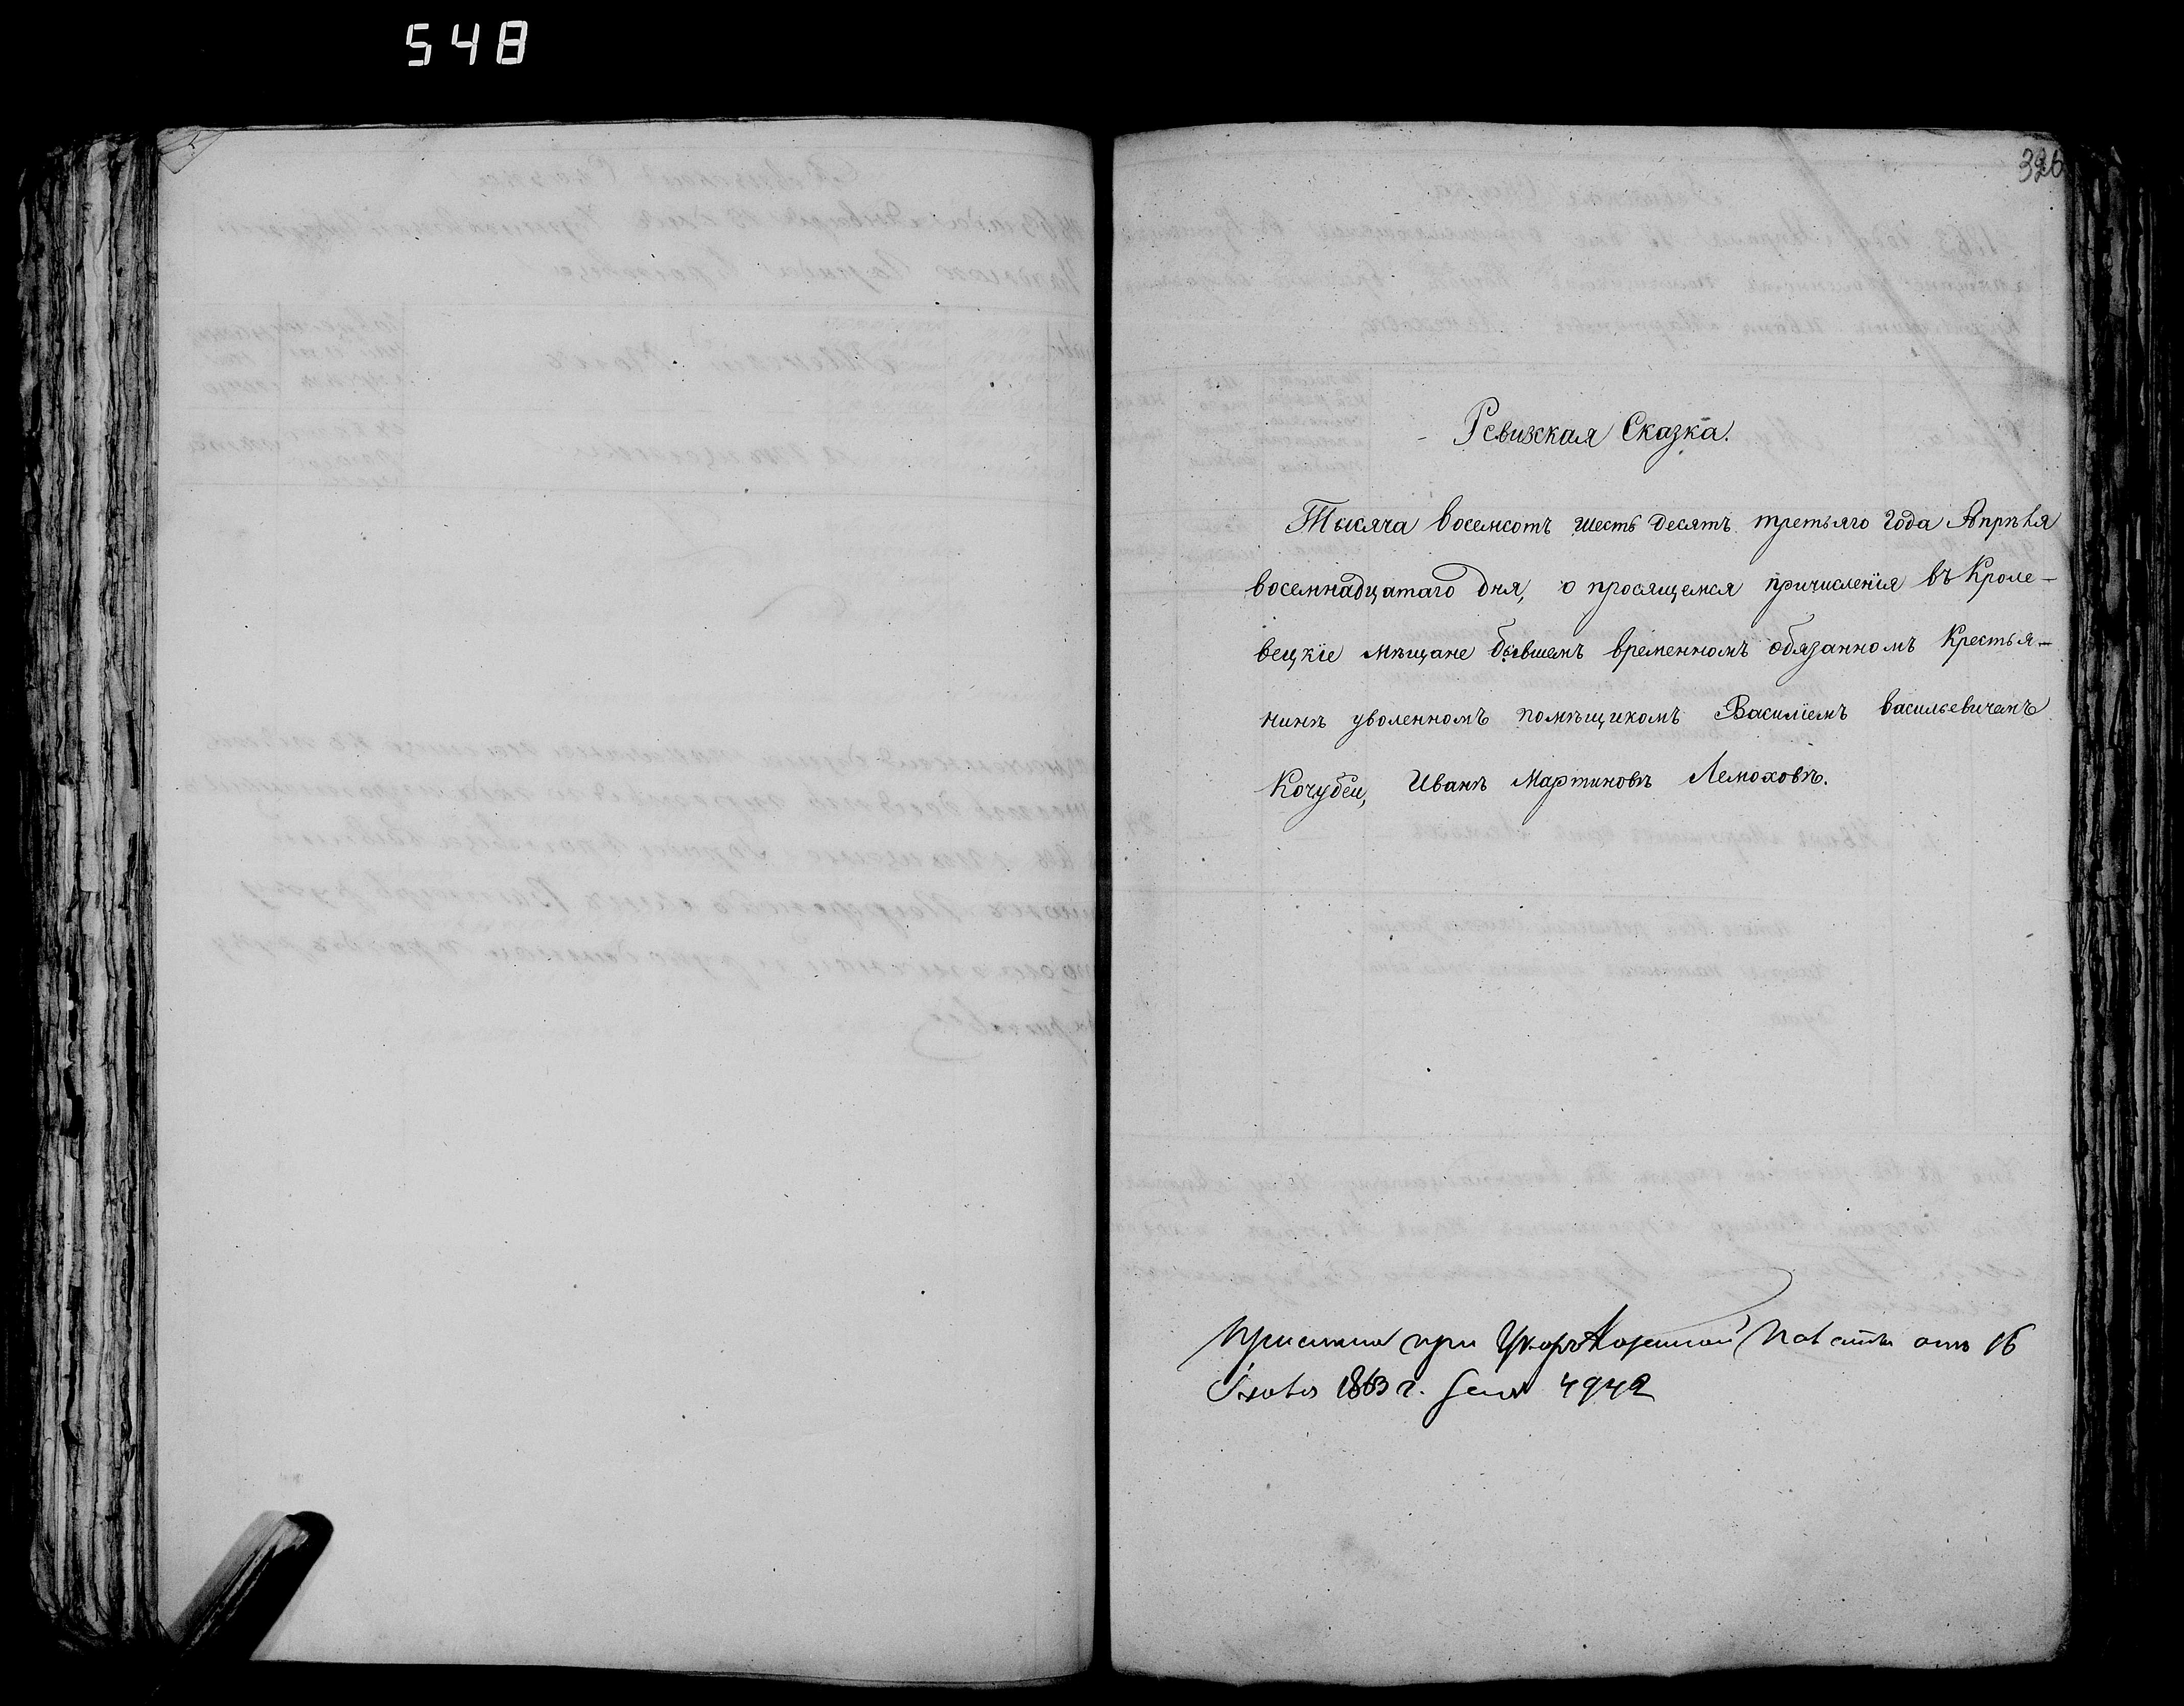 548
326
Ревизская Сказка.
Тысяча восемсотъ шесть десятъ третьяго года Апрѣля
восемнадцатаго дня, о просящемся причисленія въ Кроле-
вецкіе мѣщане бывшемъ временномъ обязанномъ Крестья-
нинѣ уволенномъ помѣщикомъ Василіемъ Васильевичемъ
Кочубеи, Иванѣ Мартиновѣ Лемоховѣ.
при отъ 16
1863 г. 4942